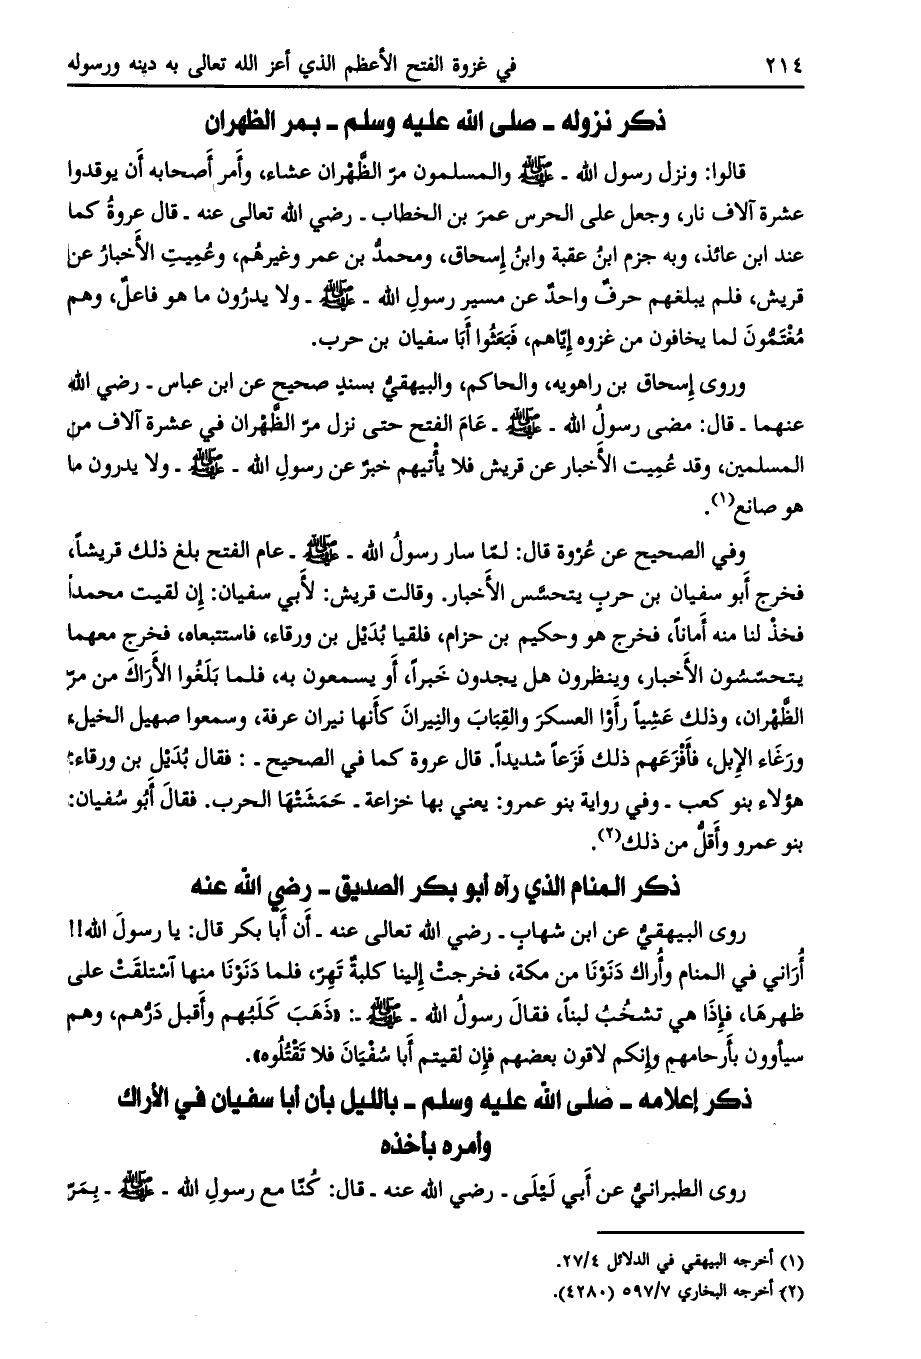 ٢١٤ في غزوة الفتح الأعظم الذي أعز الله تعالى به دينه ورسوله
ذكر نزوله ـ صلى الله عليه وسلم ـ بمر الظهران
قالوا: ونزل رسول الله ـ ﷺ والمسلمون مرّ الظَّهْران عشاء، وأَمر أَصحابه أَن يوقدوا
عشرة آلاف نار، وجعل على الحرس عمرَ بن الخطاب ـ رضي الله تعالى عنه ـ قال عروةُ كما
عند ابن عائذ، وبه جزم ابنُ عقبة وابنُ إسحاق، ومحمدُ بن عمر وغيرهُم، وعُميتِ الأَخبارُ عن
قريش، فلم يبلغهم حرفٌ واحدٌ عن مسير رسولِ الله ـ ﷺ ـ ولا يدرُون ما هو فاعلٌ، وهم
مُغْتَمُّونَ لما يخافون من غزوه إيَّاهم، فَبَعَثُوا أَبَا سفيان بن حرب.
وروى إسحاق بن راهويه، والحاكم، والبيهقيُّ بسندٍ صحيح عن ابن عباس ـ رضي الله
عنهما ـ قال: مضى رسولُ الله ـ ﷺ ـ عَامَ الفتح حتى نزل مرّ الظَّهْران في عشرة آلاف من
المسلمين، وقد عُمِيت الأَخبار عن قريش فلا يأْتيهم خبرٌ عن رسولِ الله ـ ﷺ ـ ولا يدرون ما
هو صانع(١).
وفي الصحيح عن عُرْوة قال: لمّا سار رسولُ الله ـ ﷺ ـ عام الفتح بلغ ذلك قريشاً،
فخرج أَبو سفيان بن حربٍ يتحسَّس الأَخبار. وقالت قريش: لأَبي سفيان: إن لقيت محمداً
فخذْ لنا منه أَماناً، فخرج هو وحكيم بن حزام، فلقيا بُدَيْل بن ورقاء، فاستتبعاه، فخرج معهما
يتحسّسُون الأَخبار، وينظرون هل يجدون خَبراً، أَو يسمعون به، فلما بَلَغُوا الأَرَاكَ من مرّ
الظَّهْران، وذلك عَشِياً رأَوْا العسكرَ والقِبَابَ والنِيرانَ كأَنها نيران عرفة، وسمعوا صهيل الخيل،
ورَغَاء الإبل، فأَفْزَعَهم ذلك فَزَعاً شديداً. قال عروة كما في الصحيح ـ : فقال بُدَيْل بن ورقاء:
هؤلاء بنو كعب ـ وفي رواية بنو عمرو: يعني بها خزاعة ـ حَمَشَتْهَا الحرب. فقالَ أَبُو سُفيان:
بنو عمرو وأَقلُّ من ذلك(٢).
ذكر المنام الذي رآه أبو بكر الصديق ـ رضي الله عنه
روى البيهقيُّ عن ابن شهابٍ ـ رضي الله تعالى عنه ـ أَن أَبا بكر قال: يا رسولَ الله!!
أُرَاني في المنام وأُراك دَنَوْنَا من مكة، فخرجتْ إلينا كلبةٌ تَهِرّ، فلما دَنَوْنَا منها آستلقَتْ على
ظهرهَا، فإِذَا هي تشخُبُ لبناً، فقالَ رسولُ الله ـ ﷺ ـ: «ذَهَبَ كَلَبُهم وأَقبل دَرُّهم، وهم
سيأوون بأَرحامهم وإنكم لاقون بعضهم فإن لقيتم أَبا سُفْيَانَ فلا تَقْتُلُوه».
ذكر إعلامه ـ صلى الله عليه وسلم ـ بالليل بأن أبا سفيان في الأراك
وأمره بأخذه
روى الطبرانيُّ عن أَبي لَيْلَى ـ رضي الله عنه ـ قال: كُنّا مع رسولِ الله ـ ﷺ ـ بِمَرّ
(١) أخرجه البيهقي في الدلائل ٢٧/٤.
(٢) أخرجه البخاري ٥٩٧/٧ (٤٢٨٠).